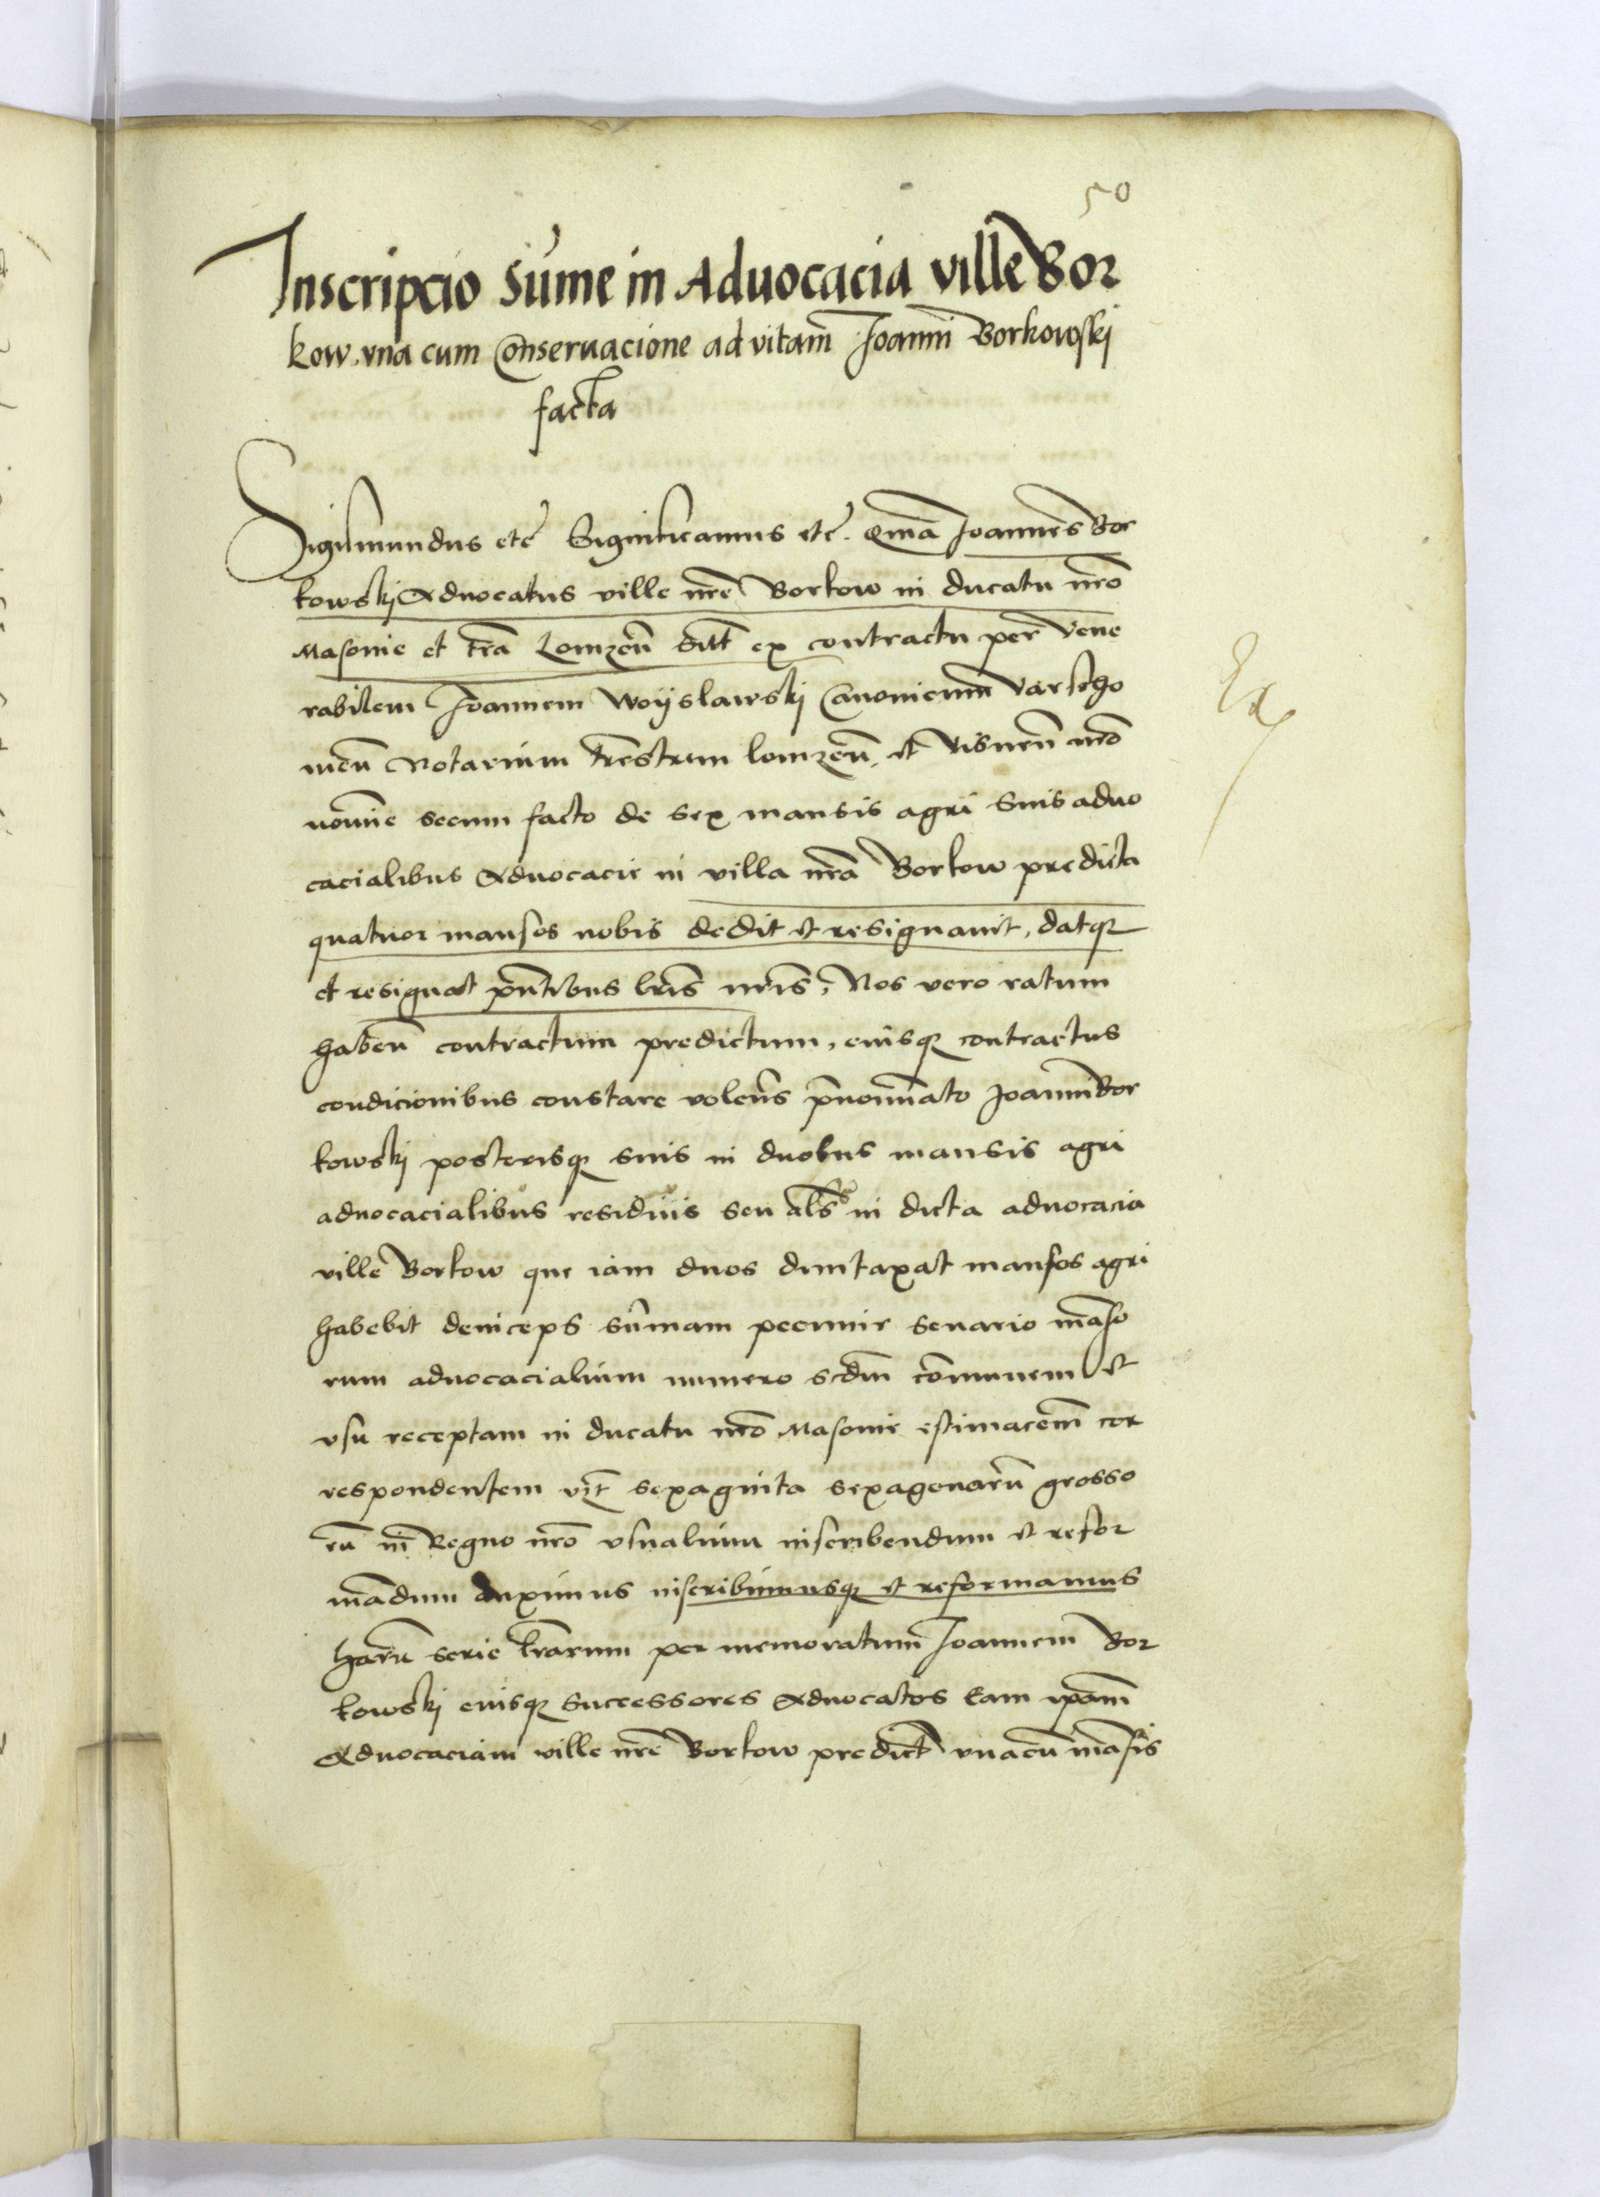 50
Inscripcio Sume in Aduocacia ville Bor
kow vna cum Conseruacione ad vitam Joanni Borkowskj
facta
Sigismundus etc Significamus etc. Qma Joannes Bor
kowskj Aduocatus ville nre Borkow in ducatu nro
Masouie et tra Lomzen ditt ex contractu per vene
rabilem Joannem Woyslawskj Canonicum Varscho
uien Notarium trestrem lomzen. et visnen nro
nomine secum facto de sex mansis agri suis aduo
cacialibus Aduocacie in villa nra Borkow predicta
quatuor mansos nobis dedit et resignauit, datqz
et resignat pntibus lris nris, Nos vero ratum
haben contractum predictum, eiusqz contractus
condicionibus constare volens pnominato Joanni Bor
kowskj posterisqz suis in duobus mansis agri
aduocacialibus residuis seu als in dicta aduocacia
ville Borkow que iam duos duntaxat mansos agri
habebit deinceps summam pecunie senario manso
rum aduocacialium numero scdm communem et
vsu receptam in ducatu nro Masouie estimacem cor
respondentem vit sexaginta sexagenaru grosso
ru in Regno nro vsualium inscribendum et refor
mandum duximus inscribimusqz et reformamus
haru serie lrarum per memoratum Joannem Bor
kowskj eiusqz successores Aduocatos Eam ipam
Aduocaciam ville nre Borkow predict vnacu mansis